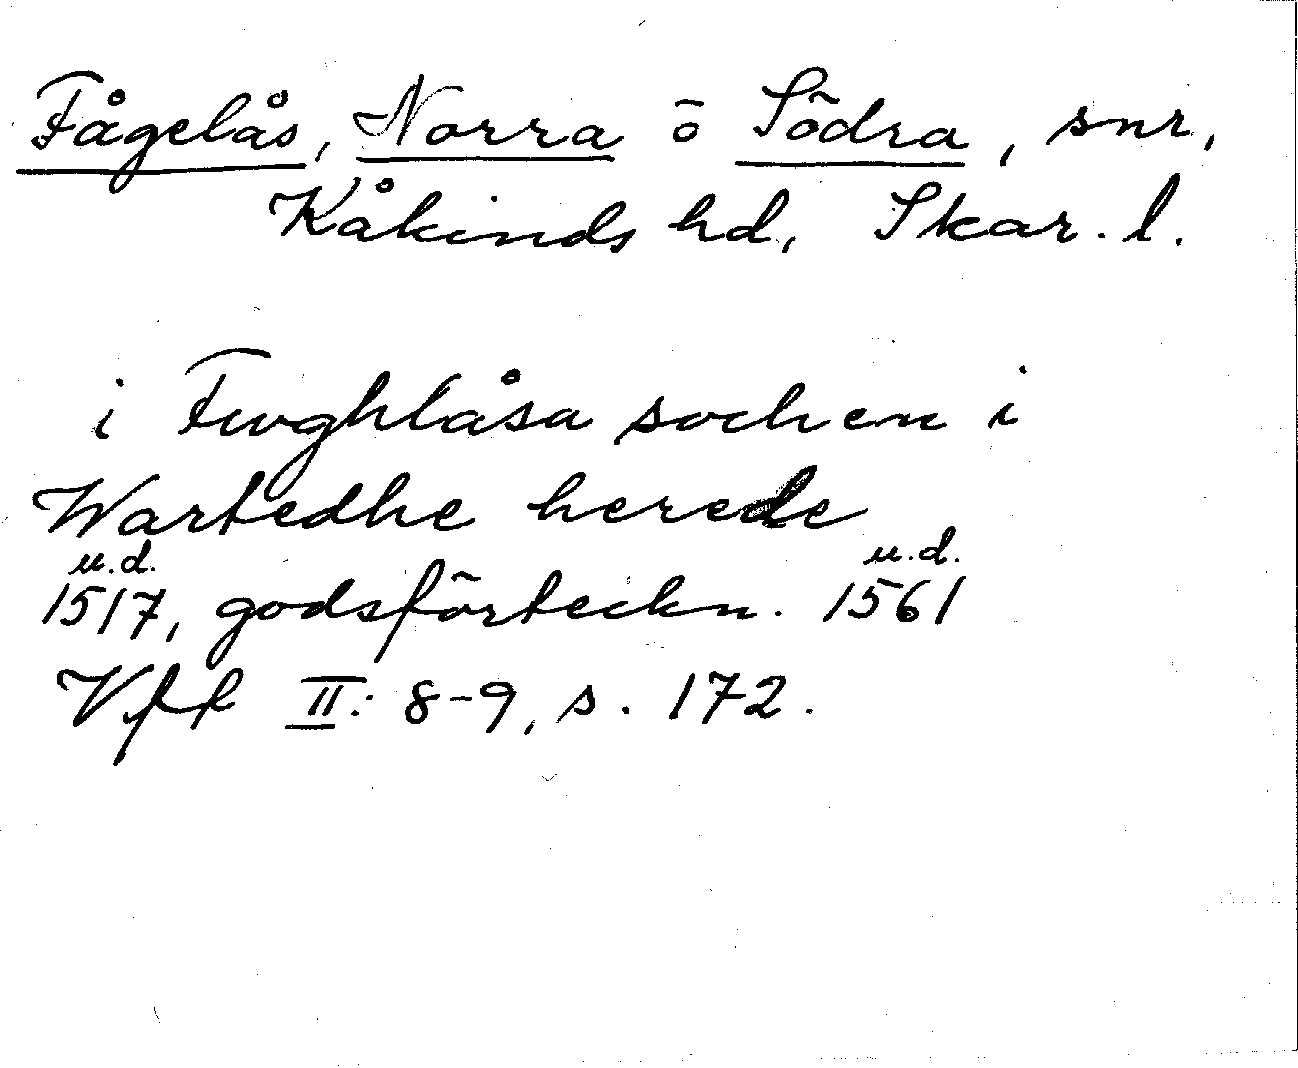 Fågelås, Norra ō Södra, snr,
Kåkinds hd, Skar. l.
i Fwghlåsa sochen i
Wartedhe herede
u.d. u.d.
1517, godsförteckn. 1561
Vff II: 8-9, s. 172.